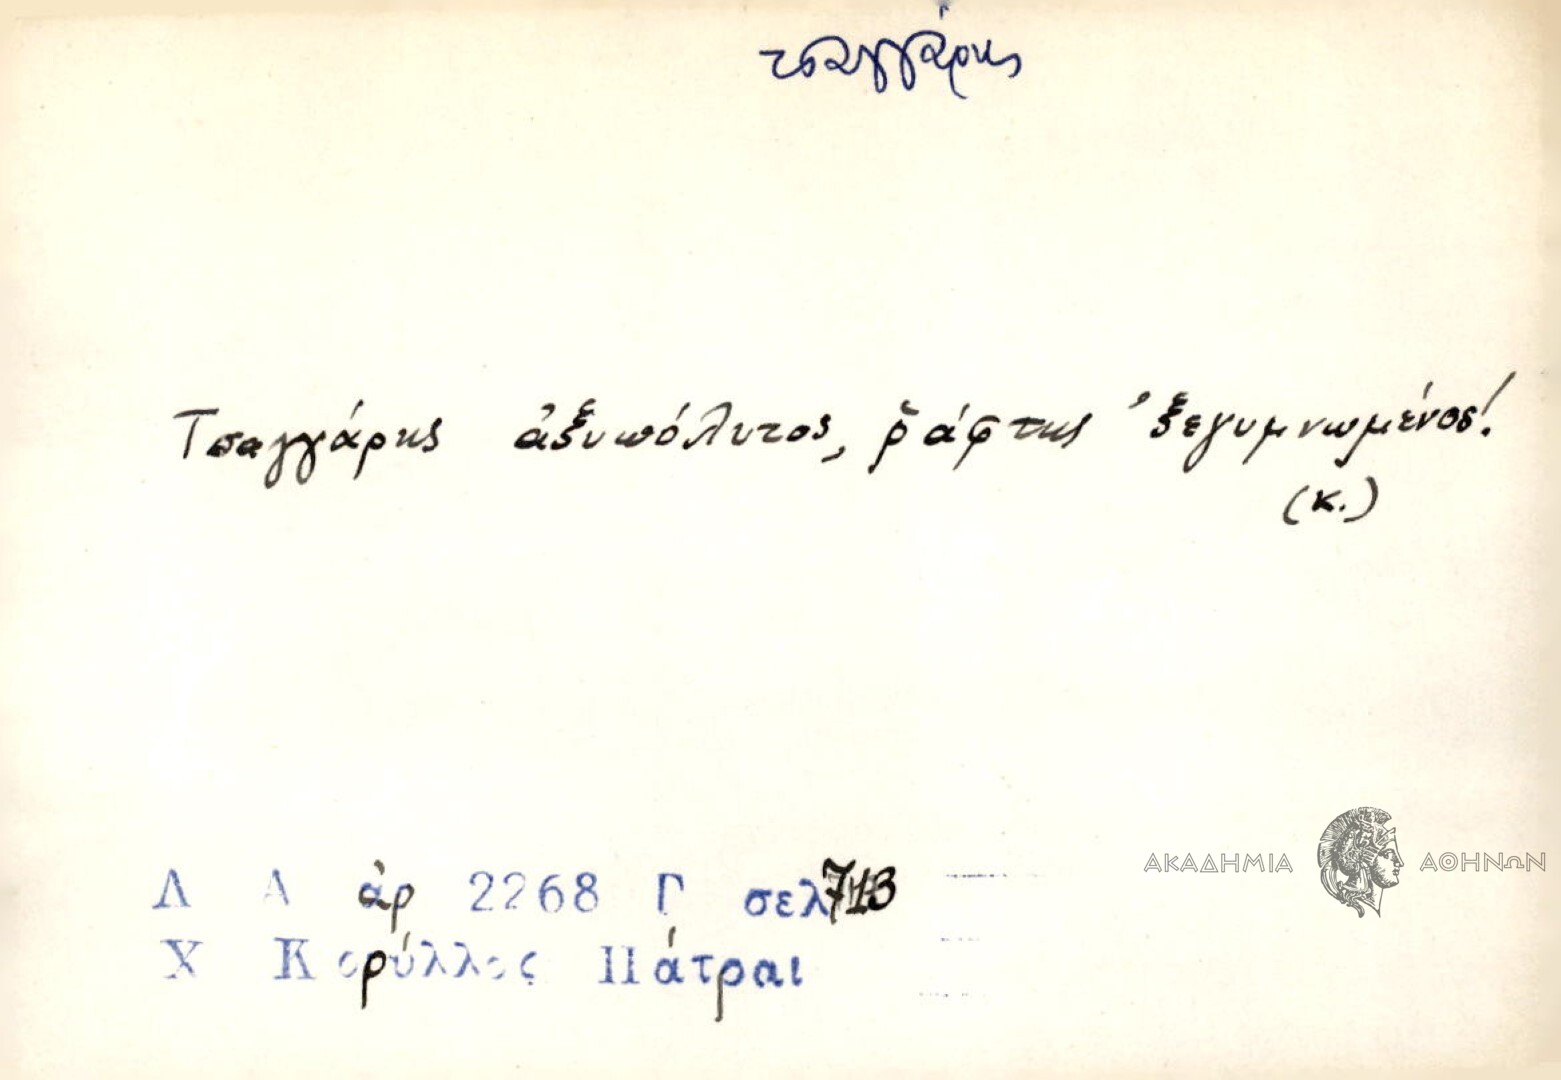 τσαγγάρης
Τσαγγάρης ἀξυπόλυτος, ῥάφτης ᾿ξεγυμνωμένος!
(κ.)
ΑΚΑΔΗΜΙΑ ΑΘΗΝΩΝ
Λ Α ἀρ 2268 Γ σελ 713
Χ Κορύλλος Πάτραι